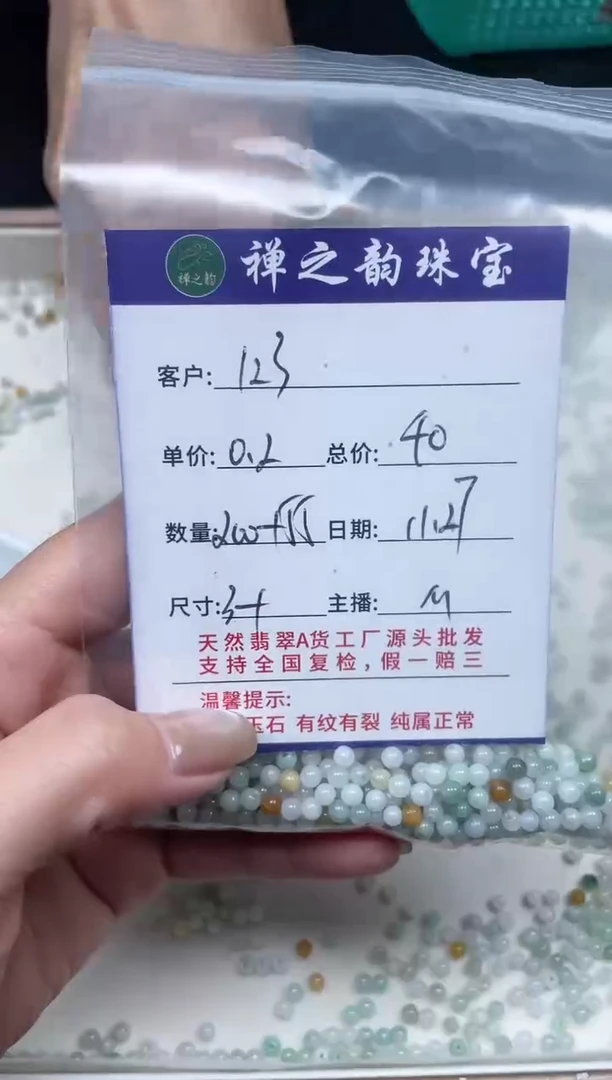 禅之韵
禅之韵珠宝
客户: 123
单价: 0.2 总价: 40
数量: 200+ 日期: 11.27
尺寸: 3+ 主播: M
天然翡翠A货工厂源头批发
支持全国复检,假一赔三
温馨提示:
玉石 有纹有裂 纯属正常